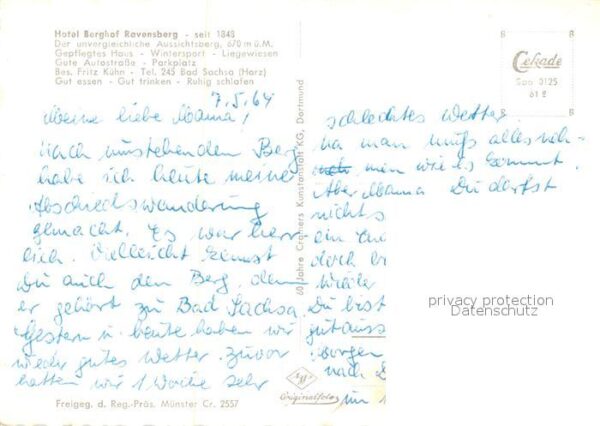 Hotel Berghof Ravensberg - seit 1848
Der unvergleichliche Aussichtsberg, 670 m ü.M.
Gepflegtes Haus - Wintersport - Liegewiesen
Gute Autostraße - Parkplatz
Bes. Fritz Kühn - Tel. 245 Bad Sachsa (Harz)
Gut essen - Gut trinken - Ruhig schlafen
7.5.64
Meine liebe Mama!
Nach umstehenden Berg
habe ich heute meine
Abschiedswanderung
gemacht. Es war herr
lich. Vielleicht kennst
Du auch den Berg, denn
er gehört zu Bad Sachsa.
Gestern u. heute haben wir
wieder gutes Wetter. Zuvor
hatten wir 1 Woche sehr
Freigeg. d. Reg.-Präs. Münster Cr. 2557
60 Jahre Cramers Kunstanstalt KG, Dortmund
Cekade
Sao 0125
61 2
schlechtes Wetter,
na man muß alles neh-
men wie es kommt.
Aber Mama Du darfst
nichts
ein
doch
wieder
Du bist
gut auss
Morgen
nach
im
Agfa
Originalfoto
privacy protection
Datenschutz